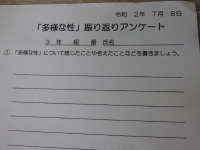 令和 2年 7月 8日
「多様な性」振り返りアンケート
3年 組 番 氏名
① 「多様な性」について感じたことや考えたことなどを書きましょう。